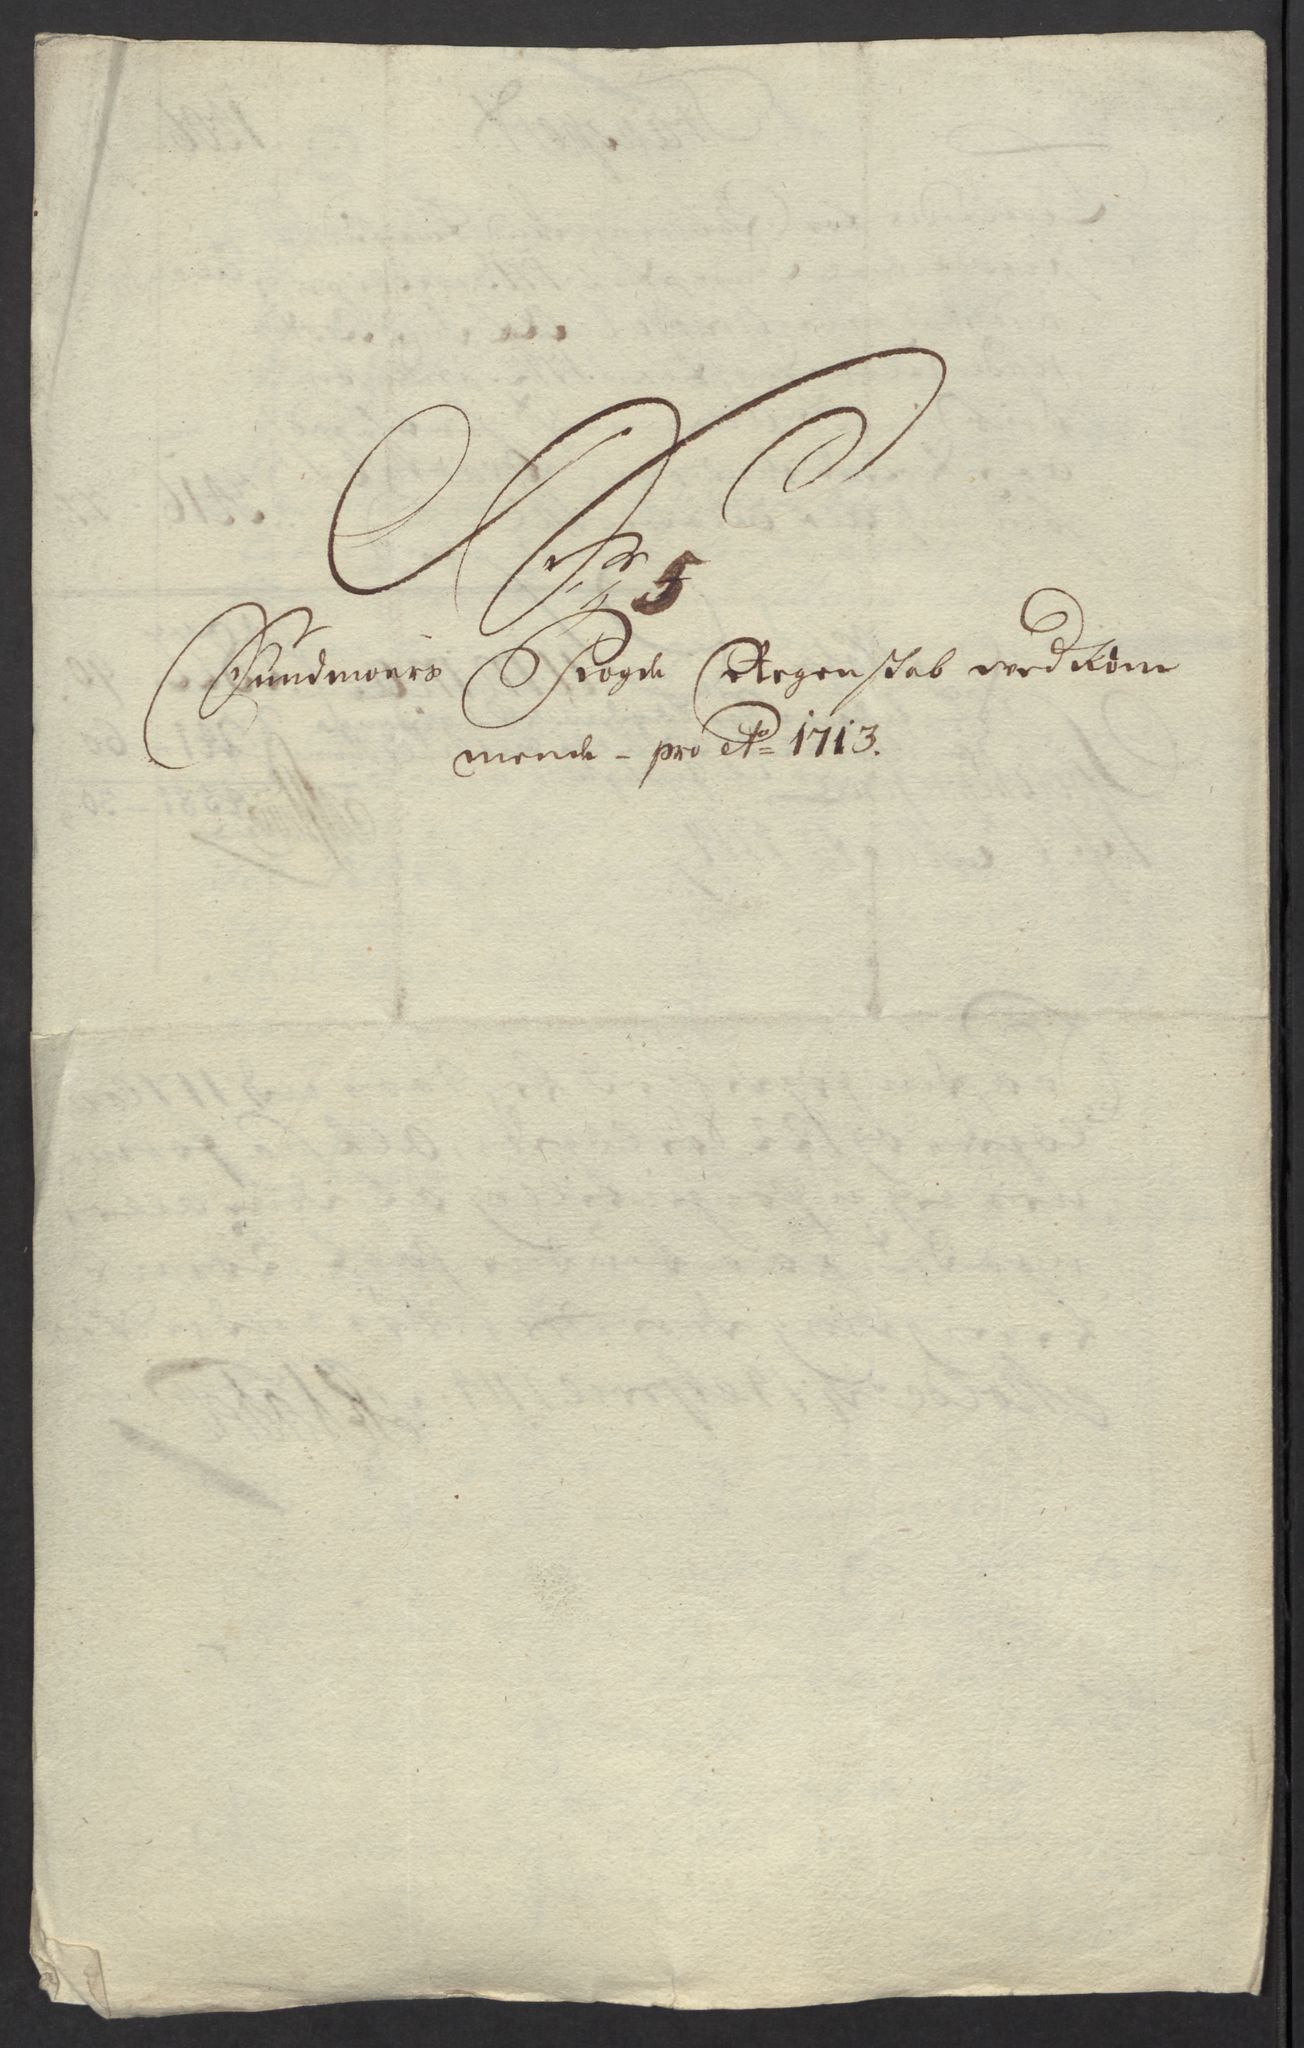 No 5
Sundmoers Fogde Regenskab vedkom
mende - pro Ao 1713.